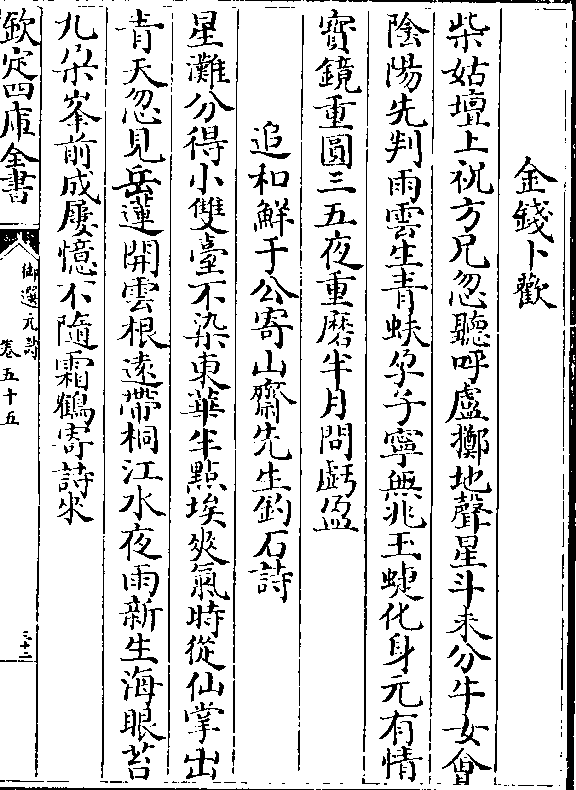 金錢卜歡
柴姑壇上祝方兄忽聽呼盧擲地聲星斗未分牛女會
陰陽先判雨雲生青蚨孕子寧無兆玉蜨化身元有情
寳鏡重圓三五夜重磨半月問虧盈
追和鮮于公寄山齋先生釣石詩
星灘分得小雙臺不染東華半點埃爽氣時從仙掌出
青天忽見岳蓮開雲根遠帶桐江水夜雨新生海眼苔
九朶峯前成屢憶不隨霜鶴寄詩來
欽定四庫全書
御選元詩
卷五十五
三十二